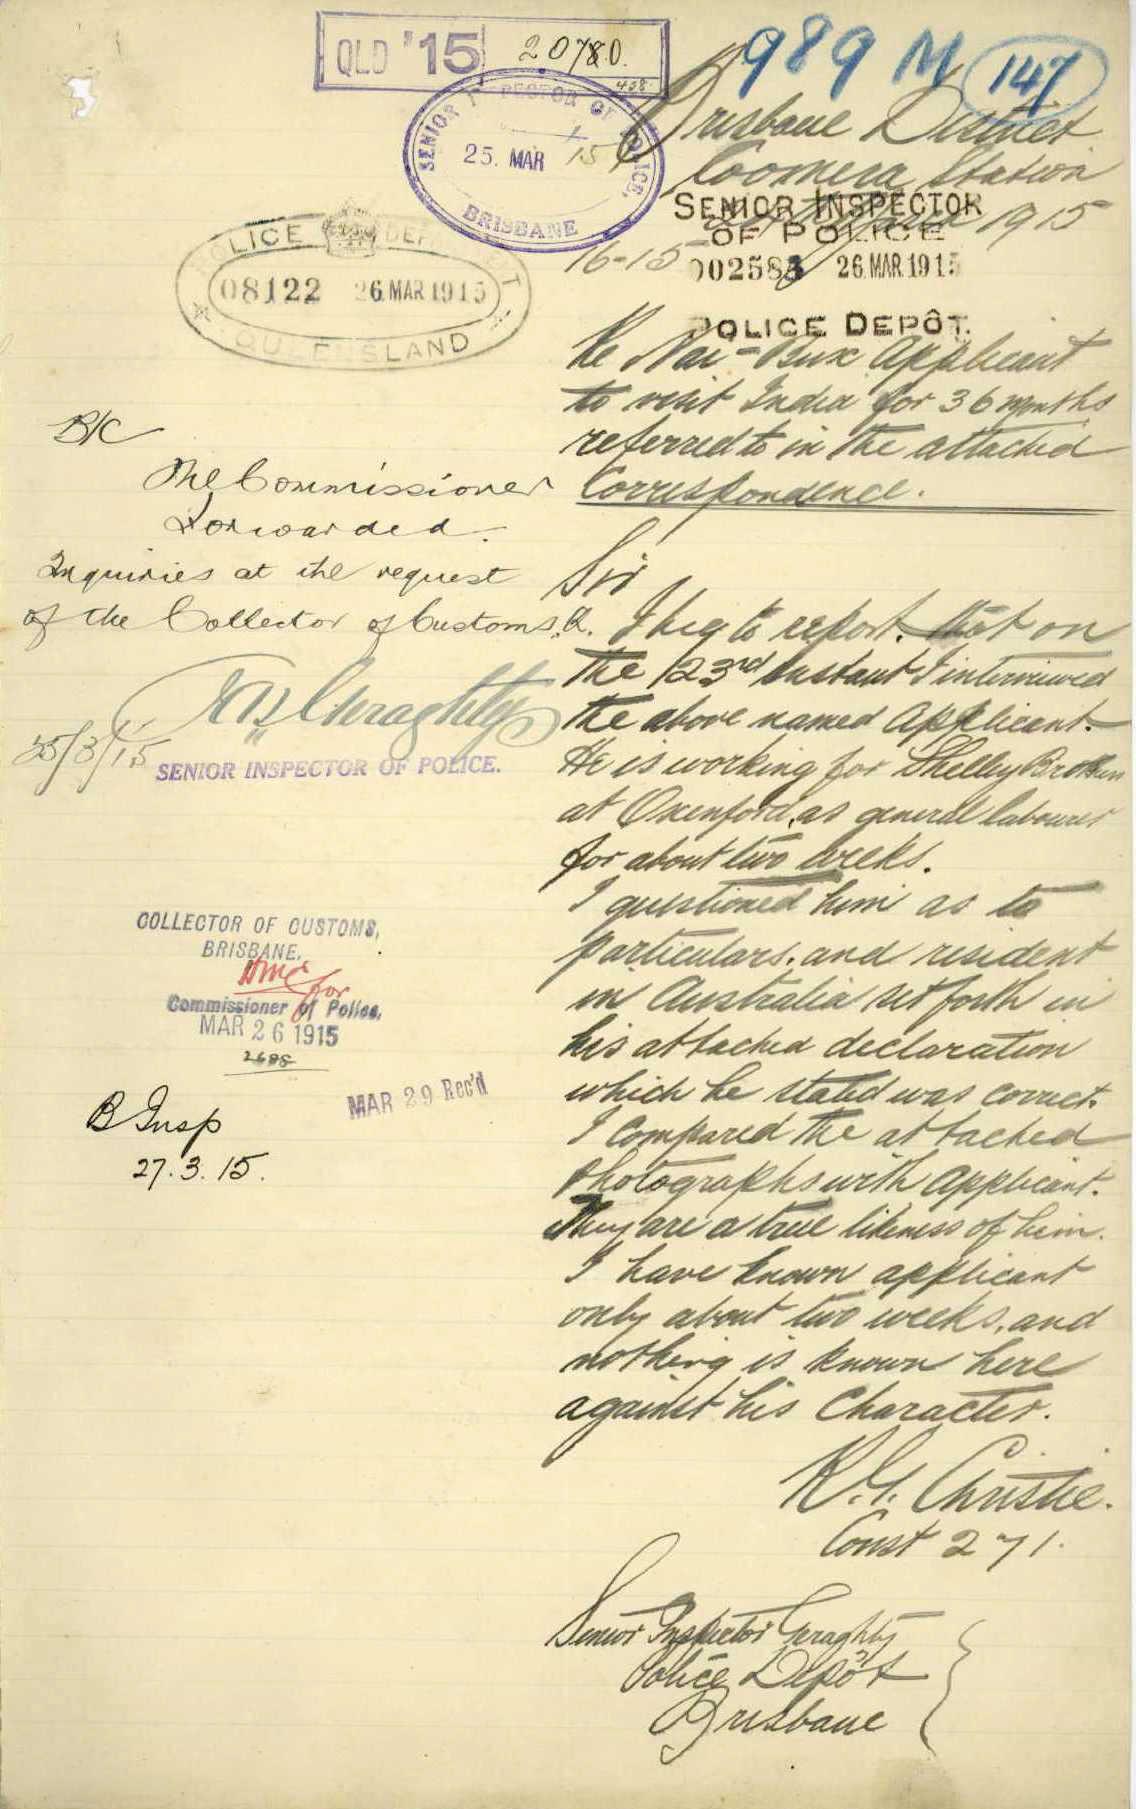 QLD '15 20780.
408
989 M 147
SENIOR INSPECTOR OF POLICE,
25. MAR 15
BRISBANE
Brisbane District
Coomera Station
1915
16-15
SENIOR INSPECTOR
OF POLICE
002583 26.MAR.1915
POLICE DEPÔT.
POLICE DEPARTMENT
08122 26.MAR 1915
QUEENSLAND
Re Nai-Bux applicant
to visit India for 36 months
referred to in the attached
Correspondence.
B/C
The Commissioner
Forwarded.
Inquiries at the request
of the Collector of Customs. Q.
Geraghty
25/3/15
SENIOR INSPECTOR OF POLICE.
COLLECTOR OF CUSTOMS,
BRISBANE.
for
Commissioner of Police.
MAR 26 1915
2698
MAR 29 Rec'd
B Insp
27.3.15.
Sir
I beg to report. that on
the 23rd Instant I interviewed
the above named applicant.
He is working for Shelley Brothers
at Oxenford, as general labourer
for about two weeks.
I questioned him as to
particulars. and resident
in Australia set forth in
his attached declaration
which he stated was correct.
I compared the attached
photographs with applicant.
They are a true likeness of him.
I have known applicant
only about two weeks, and
nothing is known here
against his Character.
K.G. Christie.
Const 271.
Senior Inspector Geraghty
Police Depôt
Brisbane